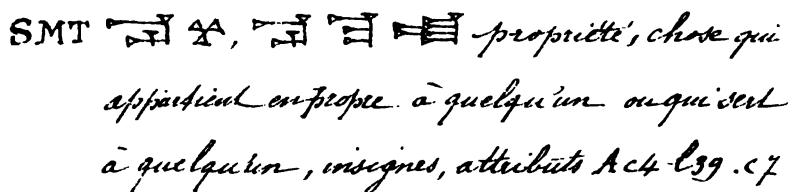 SMT , propriété, chose qui
appartient en propre à quelqu'un ou qui sert
à quelqu'un, insignes, attributs Ac4 l39.c7